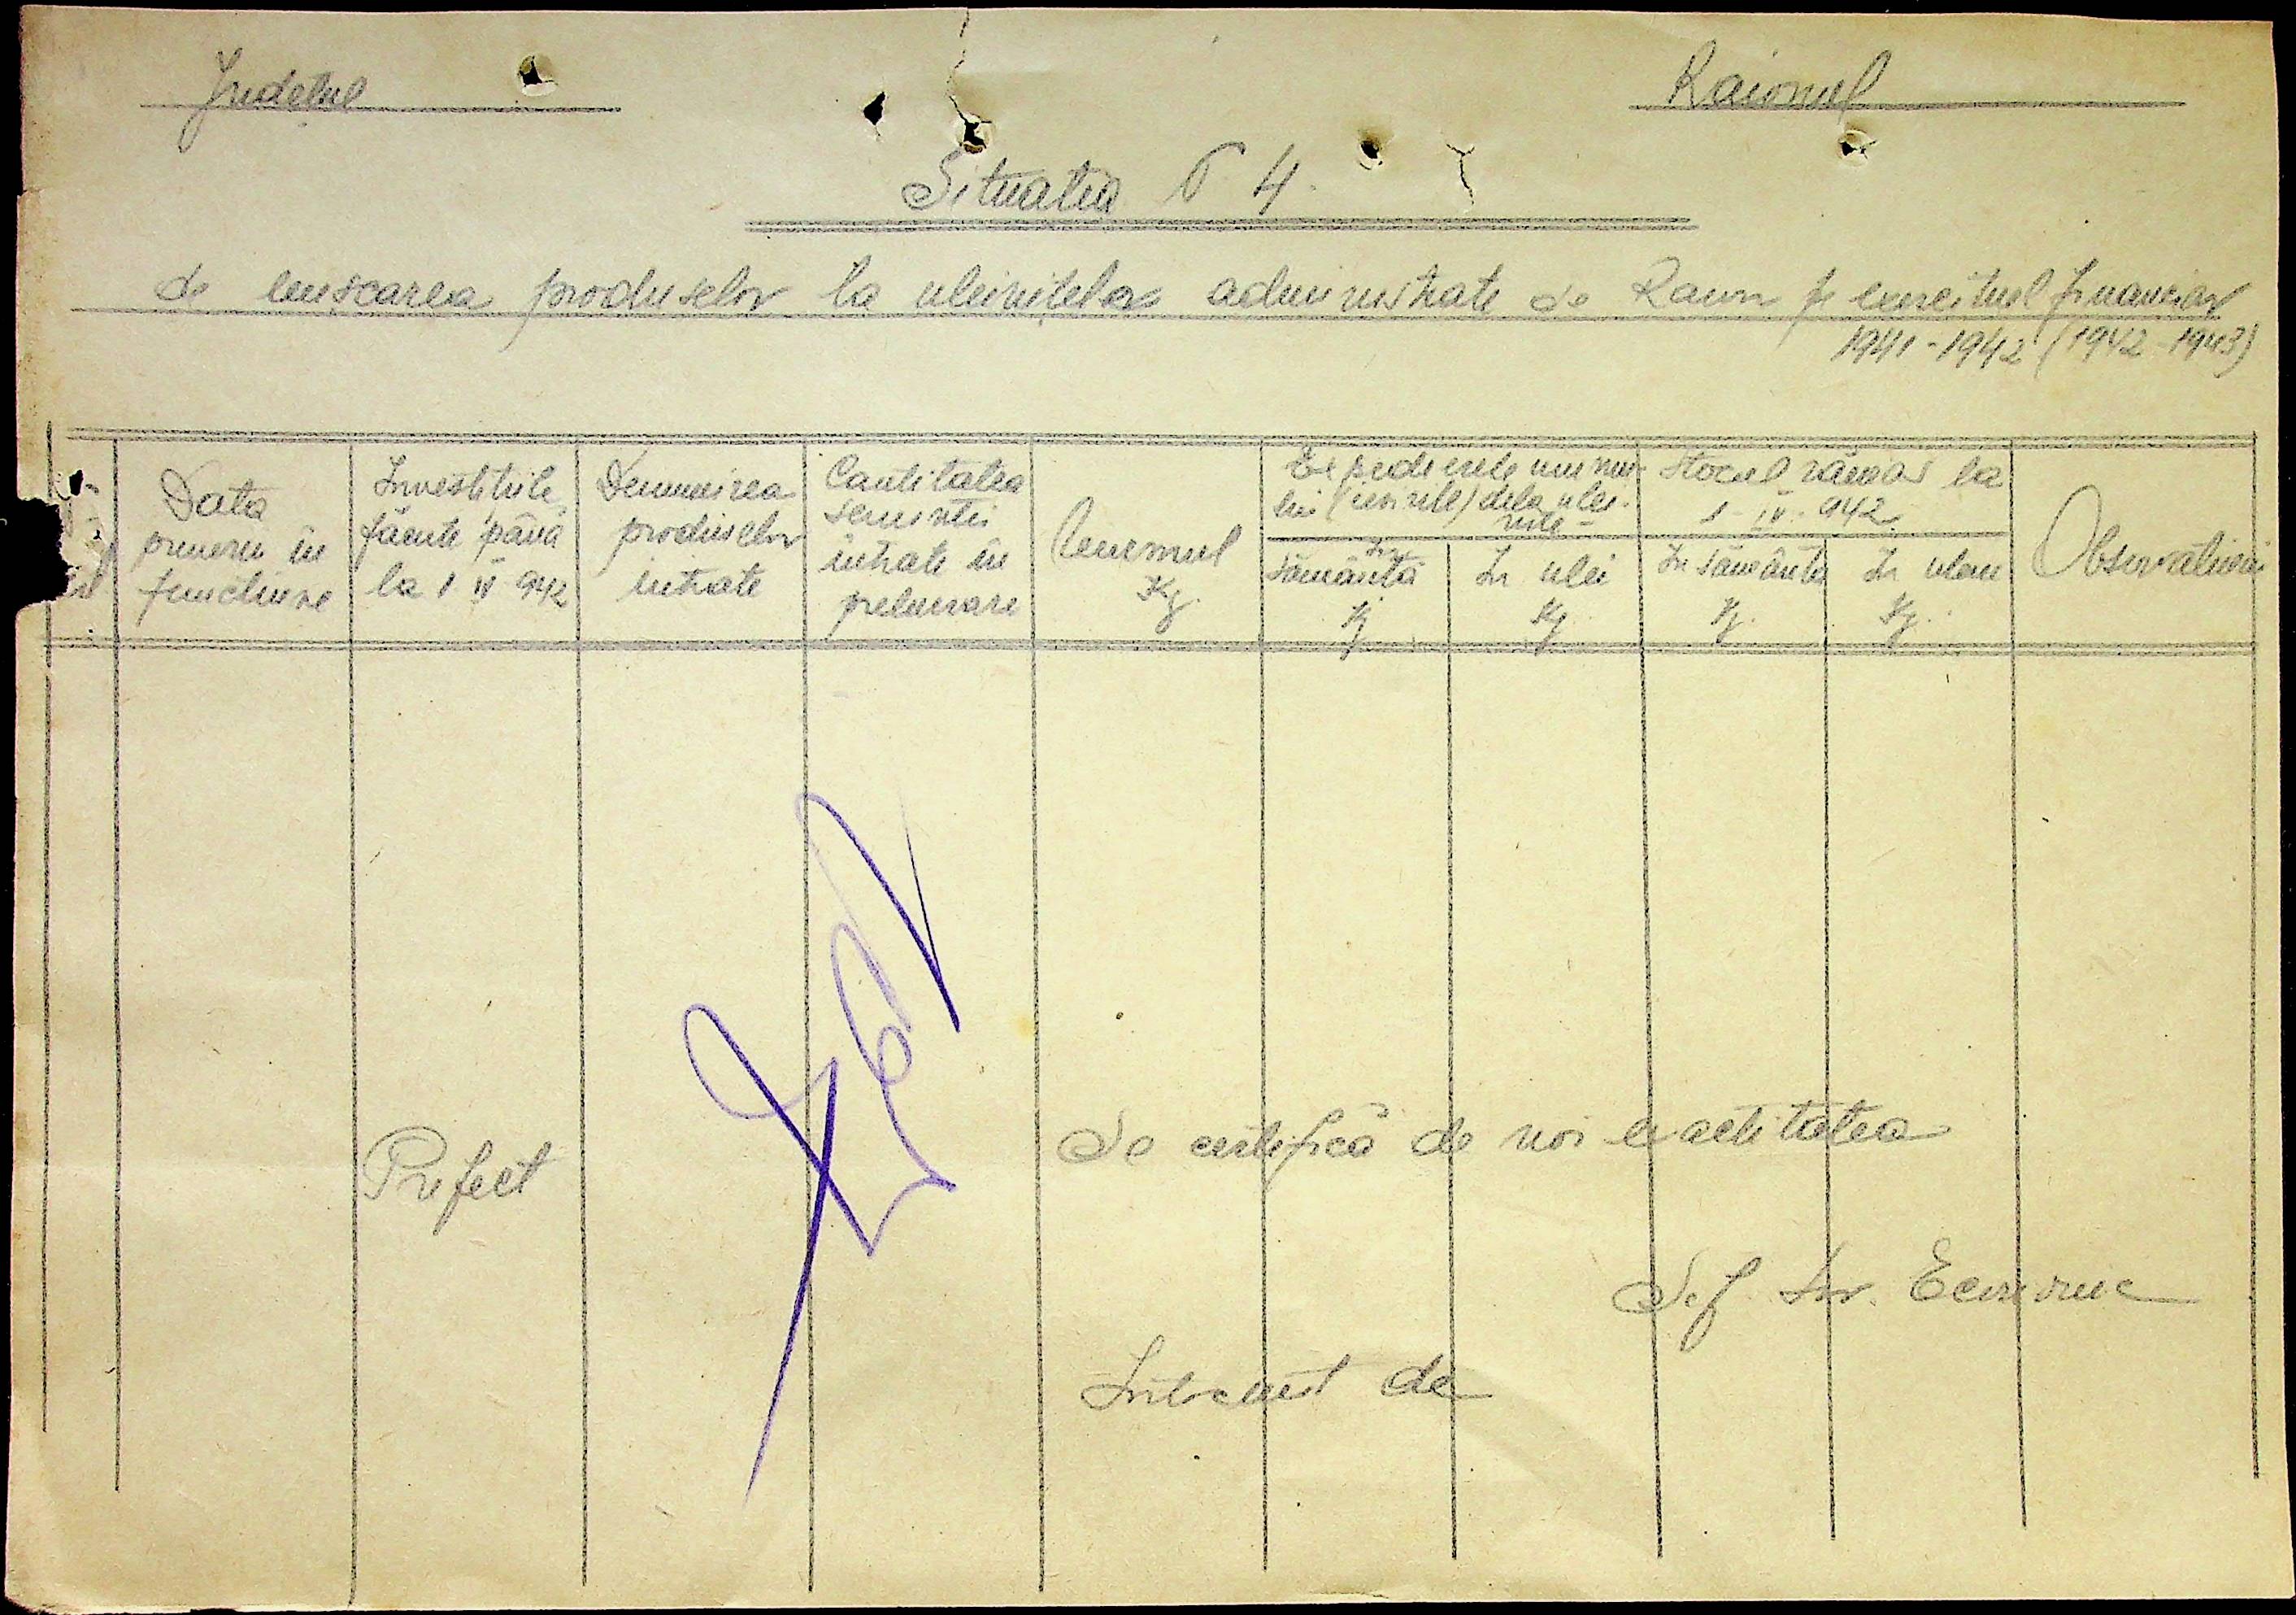 Judetul
Raionul
Situatia 4
de miscarea produselor la uleinitele administrate de Raion pe exercitiul financiar
1941-1942 (1942-1943)
Data
punerii în
functiune
Investitiile
făcute până
la 1 IV 942
Denumirea
produselor
intrate
Cantitatea
semintei
intrate în
prelucrare
Uleiul
Kg.
Expedierele
(iesirile) dela
In
sământa
Kg
In ulei
Kg.
Stocul rămas la
1-IV-942
In sământa
Kg.
In uleiu
Kg.
Observatiuni
Prefect
Se certifică de noi exactitatea
Sef Serv. Economic
Intocmit de